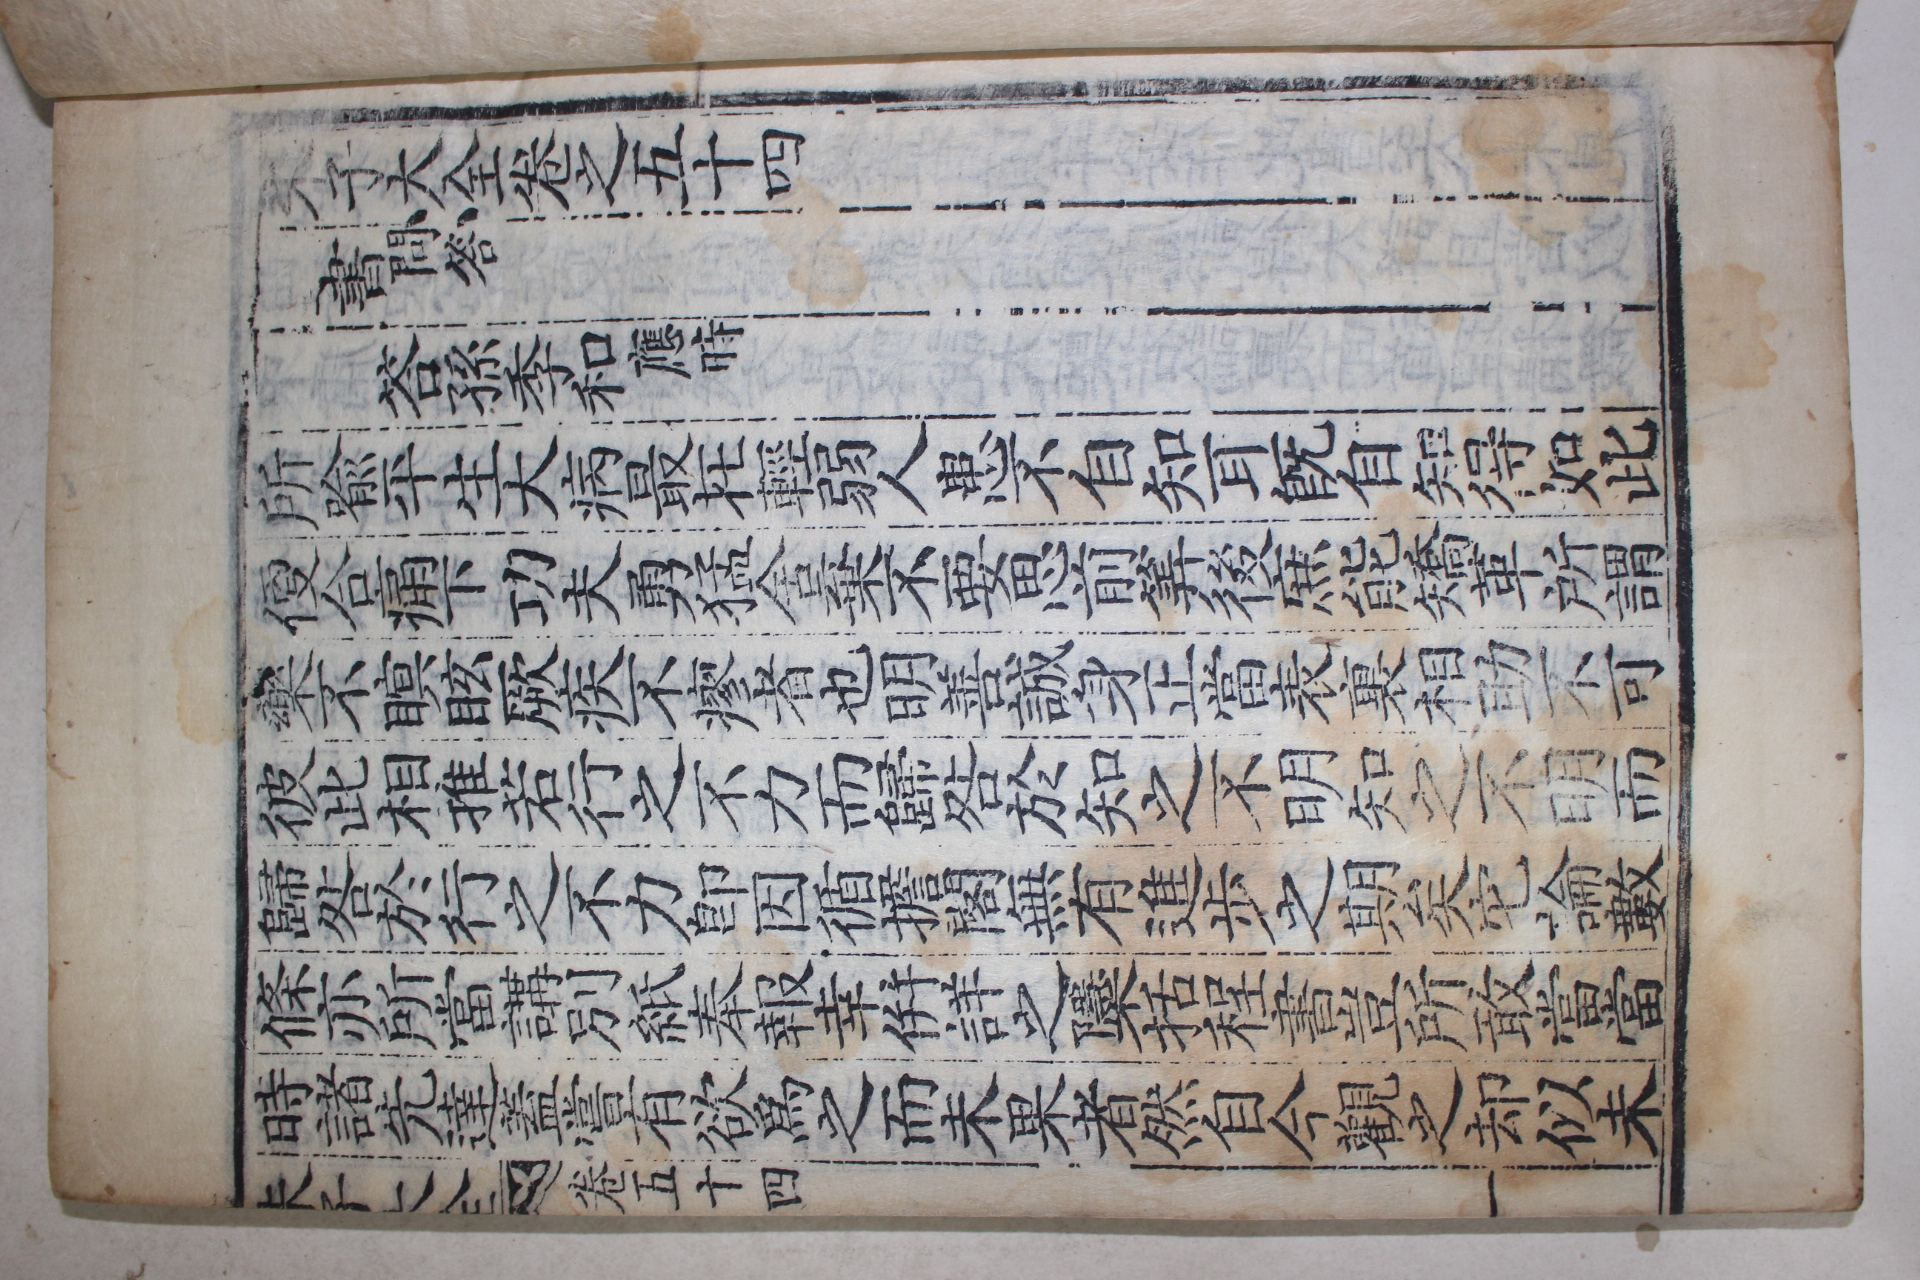 朱子大全卷之五十四
書問答
答孫季和應時
所喩平生大病最在輕弱人患不自知耳旣自知得如此
便合痛下功夫勇猛舍棄不要思前筭後庶能矯革所謂
藥不瞑眩厥疾不瘳者也明善誠身正當表裏相助不可
彼此相推若行之不力而歸咎於知之不明知之不明而
歸咎於行之不力卽因循擔閣無有進步之期矣它論數
條亦所當講別紙奉報幸併詳之櫽括程書豈所敢當當
時諸先達蓋嘗有欲爲之而未果者然自今觀之却似未
朱子大全 卷五十四 一